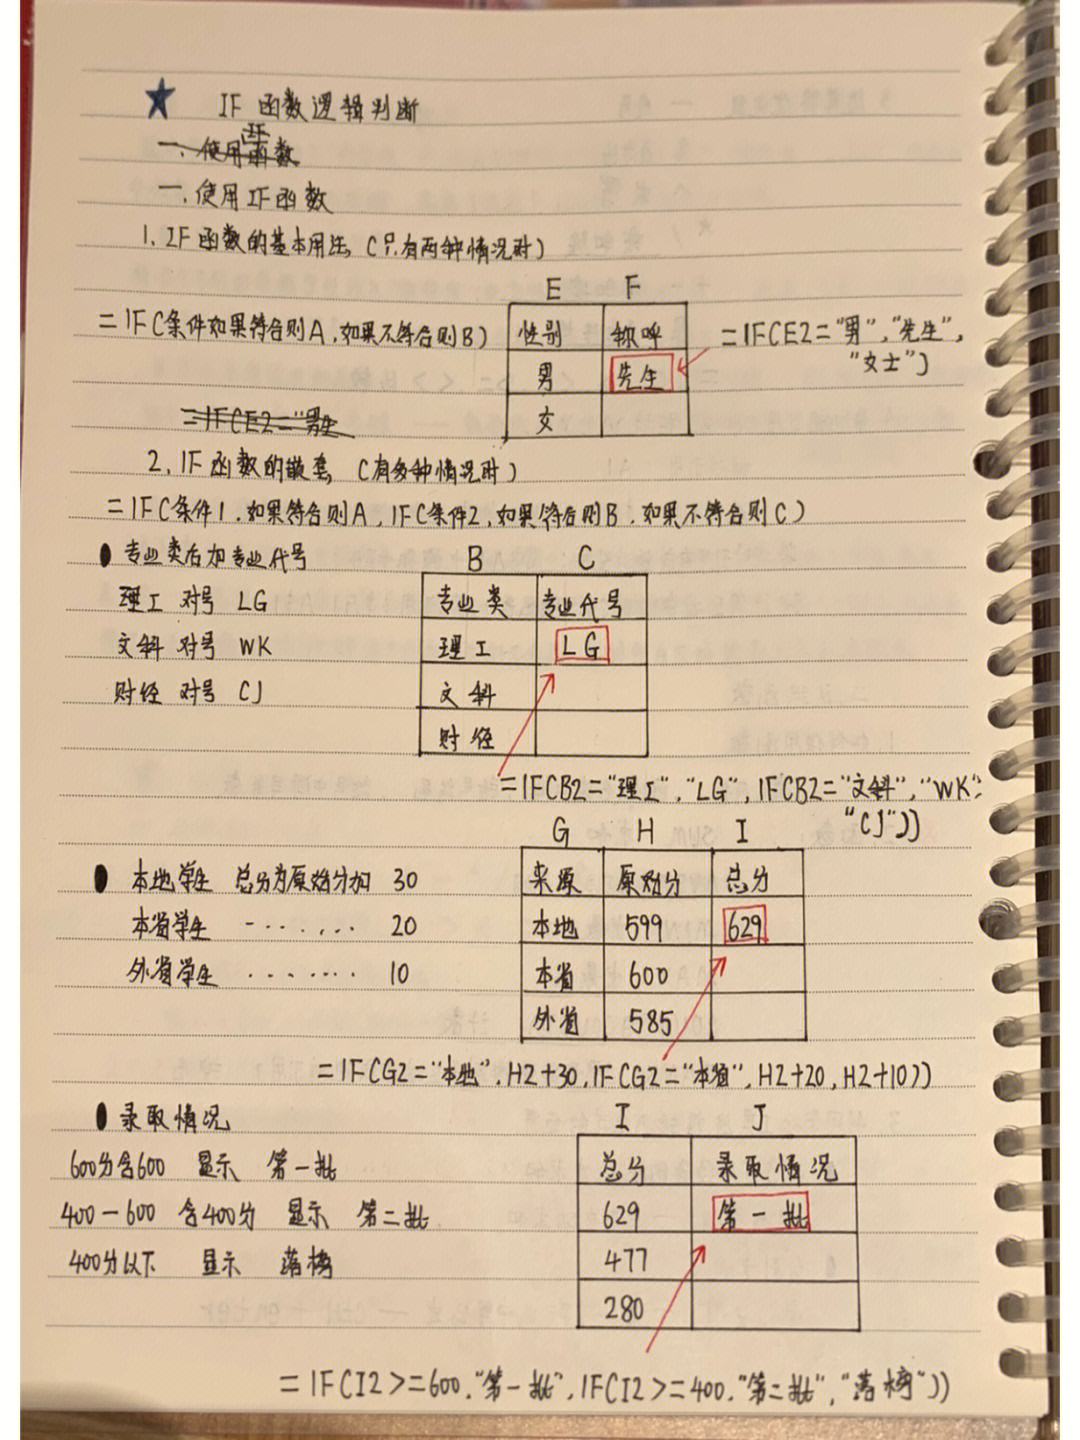 IF 函数逻辑判断
一、使用IF函数
一、使用IF函数
1、IF函数的基本用法 (只有两种情况时)
E F
=IF(条件如果符合则A,如果不符合则B)
性别 称呼
男 先生
女
=IF(E2="男","先生",
"女士")
=IF(E2="男生
2、IF函数的嵌套 (有多种情况时)
=IF(条件1,如果符合则A,IF(条件2,如果符合则B,如果不符合则C)
专业类后加专业代号
理工 对号 LG
文科 对号 WK
财经 对号 CJ
B C
专业类 专业代号
理工 LG
文科
财经
=IF(B2="理工","LG",IF(B2="文科","WK",
"CJ"))
G H I
本地学生 总分为原始分加 30
本省学生 -······ 20
外省学生 ······· 10
来源 原始分 总分
本地 599 629
本省 600
外省 585
=IF(G2="本地",H2+30,IF(G2="本省",H2+20,H2+10))
录取情况
600分含600 显示 第一批
400-600 含400分 显示 第二批
400分以下 显示 落榜
I J
总分 录取情况
629 第一批
477
280
=IF(I2>=600,"第一批",IF(I2>=400,"第二批","落榜"))